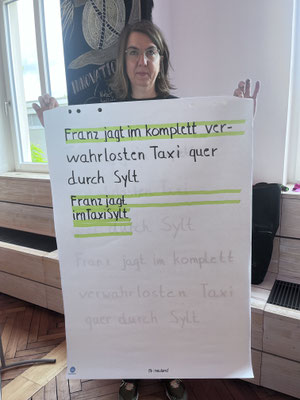 Franz jagt im komplett ver-
wahrlosten Taxi quer
durch Sylt
Franz jagt
imTaxiSylt
durch Sylt
Franz jagt im komplett
verwahrlosten Taxi
quer durch Sylt